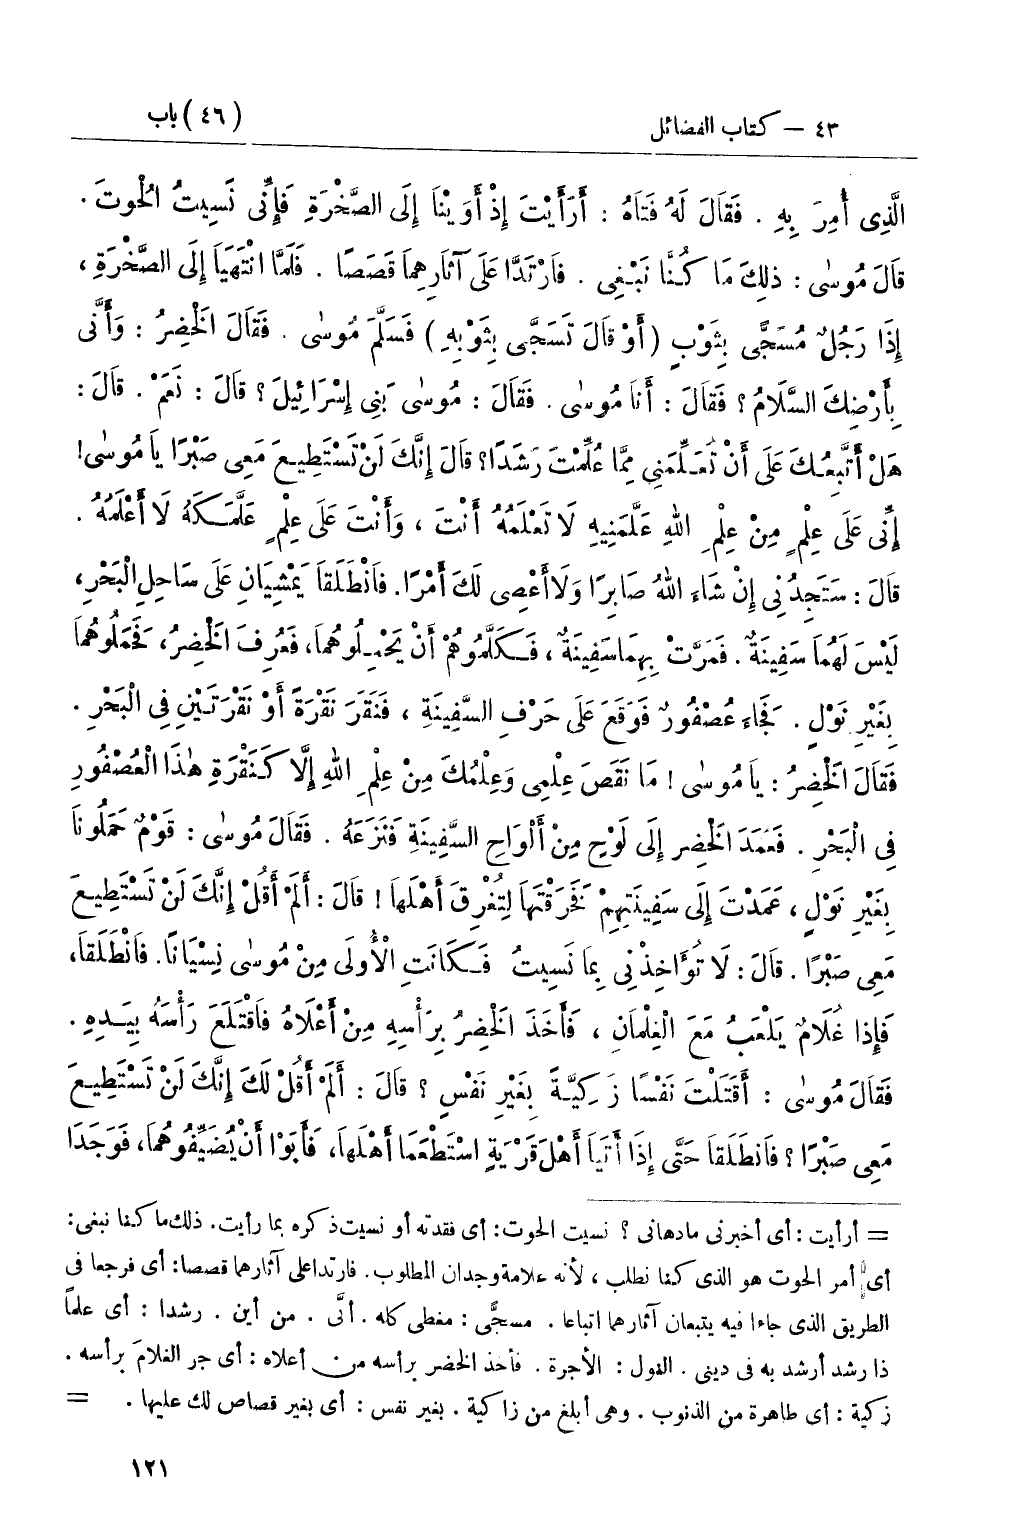 ٤٣ – كتاب الفضائل
(٤٦) باب
الَّذِى أُمِرَ بِهِ . فَقَالَ لَهُ فَتَاهُ : أَرَأَيْتَ إِذْ أَوَيْنَا إِلَى الصَّخْرَةِ فَإِنِّى نَسِيتُ الْحُوتَ .
قَالَ مُوسٰى : ذٰلِكَ مَا كُنَّا نَبْغِى . فَارْتَدَّا عَلَى آثَارِهِمَا قَصَصًا . فَلَمَّا انْتَهَيَا إِلَى الصَّخْرَةِ ،
إِذَا رَجُلٌ مُسَجًّى بِثَوْبٍ ( أَوْ قَالَ تَسَجَّى بِثَوْبِهِ ) فَسَلَّمَ مُوسٰى . فَقَالَ الْخَضِرُ : وَأَنَّى
بِأَرْضِكَ السَّلَامُ ؟ فَقَالَ : أَنَا مُوسٰى . فَقَالَ : مُوسٰى بَنِى إِسْرَائِيلَ ؟ قَالَ : نَعَمْ . قَالَ :
هَلْ أَتَّبِعُكَ عَلَى أَنْ تُعَلِّمَنِى مِمَّا عُلِّمْتَ رَشَدًا؟ قَالَ إِنَّكَ لَنْ تَسْتَطِيعَ مَعِى صَبْرًا يَا مُوسٰى!
إِنِّى عَلَى عِلْمٍ مِنْ عِلْمِ اللهِ عَلَّمَنِيهِ لَا تَعْلَمُهُ أَنْتَ ، وَأَنْتَ عَلَى عِلْمٍ عَلَّمَكَهُ لَا أَعْلَمُهُ .
قَالَ : سَتَجِدُنِى إِنْ شَاءَ اللهُ صَابِرًا وَلَا أَعْصِى لَكَ أَمْرًا. فَانْطَلَقَا يَمْشِيَانِ عَلَى سَاحِلِ الْبَحْرِ،
لَيْسَ لَهُمَا سَفِينَةٌ . فَمَرَّتْ بِهِمَا سَفِينَةٌ ، فَكَلَّمُوهُمْ أَنْ يَحْمِلُوهُمَا، فَعُرِفَ الْخَضِرُ، فَحَمَلُوهُمَا
بِغَيْرِ نَوْلٍ . فَجَاءَ عُصْفُورٌ فَوَقَعَ عَلَى حَرْفِ السَّفِينَةِ ، فَنَقَرَ نَقْرَةً أَوْ نَقْرَتَيْنِ فِى الْبَحْرِ .
فَقَالَ الْخَضِرُ : يَا مُوسٰى ! مَا نَقَصَ عِلْمِى وَعِلْمُكَ مِنْ عِلْمِ اللهِ إِلَّا كَنَقْرَةِ هٰذَا الْعُصْفُورِ
فِى الْبَحْرِ . فَعَمَدَ الْخَضِرُ إِلَى لَوْحٍ مِنْ أَلْوَاحِ السَّفِينَةِ فَنَزَعَهُ . فَقَالَ مُوسٰى : قَوْمٌ حَمَلُونَا
بِغَيْرِ نَوْلٍ ، عَمَدْتَ إِلَى سَفِينَتِهِمْ فَخَرَقْتَهَا لِتُغْرِقَ أَهْلَهَا ! قَالَ : أَلَمْ أَقُلْ إِنَّكَ لَنْ تَسْتَطِيعَ
مَعِى صَبْرًا . قَالَ : لَا تُؤَاخِذْنِى بِمَا نَسِيتُ فَكَانَتِ الْأُولَى مِنْ مُوسٰى نِسْيَانًا. فَانْطَلَقَا،
فَإِذَا غُلَامٌ يَلْعَبُ مَعَ الْغِلْمَانِ ، فَأَخَذَ الْخَضِرُ بِرَأْسِهِ مِنْ أَعْلَاهُ فَاقْتَلَعَ رَأْسَهُ بِيَدِهِ .
فَقَالَ مُوسٰى : أَقَتَلْتَ نَفْسًا زَكِيَّةً بِغَيْرِ نَفْسٍ ؟ قَالَ : أَلَمْ أَقُلْ لَكَ إِنَّكَ لَنْ تَسْتَطِيعَ
مَعِى صَبْرًا ؟ فَانْطَلَقَا حَتَّى إِذَا أَتَيَا أَهْلَ قَرْيَةٍ اسْتَطْعَمَا أَهْلَهَا، فَأَبَوْا أَنْ يُضَيِّفُوهُمَا، فَوَجَدَا
= أرأيت : أى أخبرنى مادهانى ؟ نسيت الحوت: أى فقدته أو نسيت ذكره بما رأيت. ذلك ما كنا نبغى:
أى أمر الحوت هو الذى كنا نطلب ، لأنه علامة وجدان المطلوب. فارتدا على آثارهما قصصا: أى فرجعا فى
الطريق الذى جاءا فيه يتبعان آثارهما اتباعا . مسجًّى : مغطى كله . أنَّى . من أين . رشدا : أى علماً
ذا رشد أرشد به فى دينى . النول : الأجرة . فأخذ الخضر برأسه من أعلاه : أى جر الغلامَ برأسه .
زكية : أى طاهرة من الذنوب . وهى أبلغ من زاكية . بغير نفس : أى بغير قصاص لك عليها . =
١٢١